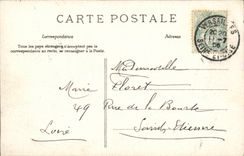 CARTE POSTALE
Correspondance
Adresse
Tous les pays étrangers n'acceptent pas
la correspondance au recto, se renseigner à la Poste.
Mademoiselle
Floret
Marie
Rue de la Bourse
49
Saint-Etienne
Loire